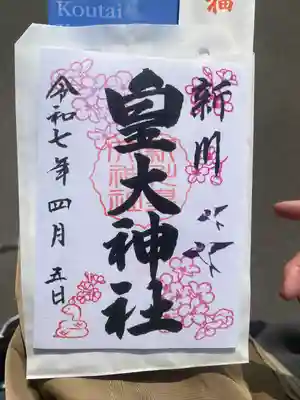 Koutai
福
新川
皇大神社
令和七年四月五日